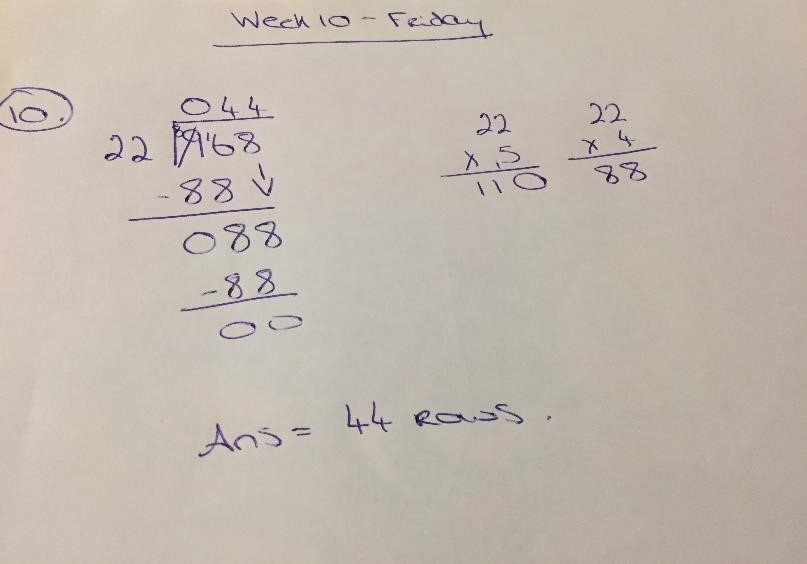 Week 10 - Friday
10.
044
22 968
- 88 ↓
088
- 88
00
22
x 5
110
22
x 4
88
Ans = 44 rows.